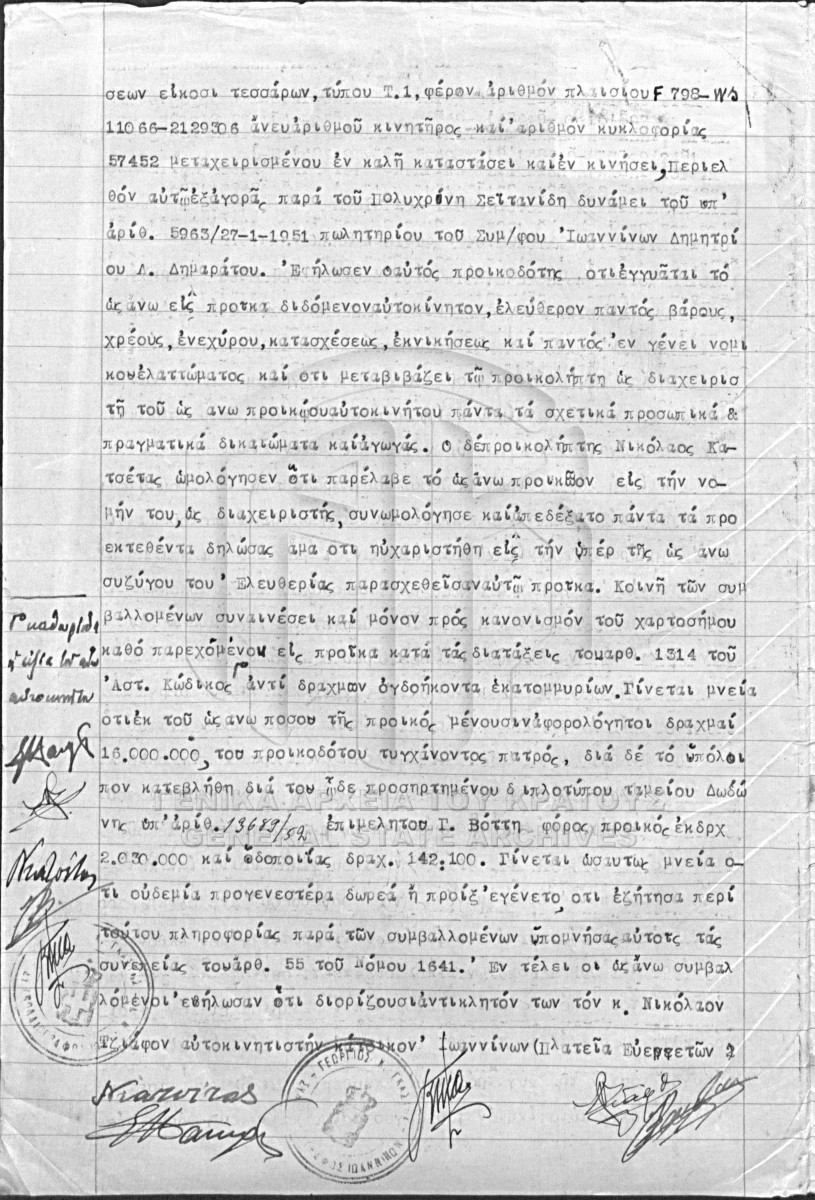 σεων εἰκοσι τεσσάρων, τύπου Τ.1, φέρον ἀριθμόν πλαισίου F 798-WS
11066-2129306 ἄνευἀριθμοῦ κινητῆρος καί ἀριθμόν κυκλοφορίας
57452 μεταχειρισμένου ἐν καλῇ καταστάσει καίἐν κινήσει, Περιελ
θόν αὐτῷἐξἀγορᾶς παρά τοῦ Πολυχρόνη Σεϊτανίδη δυνάμει τοῦ ὑπ'
ἀρίθ. 5963/27-1-1951 πωλητηρίου τοῦ Συμ/φου Ἰωαννίνων Δημητρί
ου Λ. Δημαράτου. Ἐδήλωσεν οαὐτός προικοδότης ὁτιἐγγυᾶται τό
ὡςἄνω εἰς προῖκα διδόμενοναὐτοκίνητον, ἐλεύθερον παντός βάρους,
χρέους, ἐνεχύρου, κατασχέσεως, ἐκνικήσεως καί παντός ἐν γένει νομι
κοῦἐλαττώματος καί ὁτι μεταβιβάζει τῷ προικολήπτῃ ὡς διαχειρισ
τῇ τοῦ ὡς ανω προικῴουαὐτοκινήτου πάντα τά σχετικά προσωπικά &
πραγματικά δικαιώματα καίἀγωγάς. Ο δέπροικολήπτης Νικόλαος Κα-
τσέτας ὡμολόγησεν ὅτι παρέλαβε τό ὡςἄνω προικῷον εἰς τήν νο-
μήν του, ὡς διαχειριστής, συνωμολόγησε καίἀπεδέξατο πάντα τά προ
εκτεθέντα δηλώσας αμα οτι ηὐχαριστήθη εἰς τήν ὑπέρ τῆς ὡς ανω
συζύγου του Ἐλευθερίας παρασχεθεῖσαναὐτῷ προῖκα. Κοινῇ τῶν συμ
βαλλομένων συναινέσει καί μόνον πρός κανονισμόν τοῦ χαρτοσήμου
καθό παρεχομένου εἰς προῖκα κατά τάς διατάξεις τουαρθ. 1314 τοῦ
Ἀστ. Κώδικος Γ ἀντί δραχμων ὀγδοήκοντα ἑκατομμυρίων. Γίνεται μνεία
ὁτιἐκ τοῦ ὡςανω ποσου τῆς προικός μένουσιναφορολόγητοι δραχμαί
16.000.000, του προικοδότου τυγχάνοντος πατρός, διά δέ τό ὑπόλοι
πον κατεβλήθη διά του ᾧδε προσηρτημένου διπλοτύπου ταμείου Δωδώ
νης ὑπ'ἀριθ. 13689/52 ἐπιμελητου Γ. Βόττη φόρος προικός ἐκδρχ
2.030.000 καί ὁδοποιΐας δραχ. 142.100. Γίνεται ὡσαυτως μνεία ο-
τι οὐδεμία προγενεστέρα δωρεά ἤ προίξ ἐγένετο, οτι ἐζήτησα περί
τούτου πληροφορίας παρά τῶν συμβαλλομένων ὑπομνήσαςαὐτοῖς τάς
συνεπείας τουἀρθ. 55 τοῦ Νόμου 1641. Ἐν τέλει οι ὡςἄνω συμβαλ
λόμενοι ἐδήλωσαν ὅτι διορίζουσιἀντικλητόν των τόν κ. Νικόλαον
Τζιάφον αὐτοκινητιστήν κάτοικον Ἰωαννίνων (Πλατεία Εὐεργετῶν
Γ καθωρίσθη
ἡ ἀξία τοῦ ἄνω
αὐτοκινήτου
ΓΕΝΙΚΑ ΑΡΧΕΙΑ ΤΟΥ ΚΡΑΤΟΥΣ
GENERAL STATE ARCHIVES
ΓΕΩΡΓΙΟΣ
ΙΩΑΝΝΙΝΩΝ